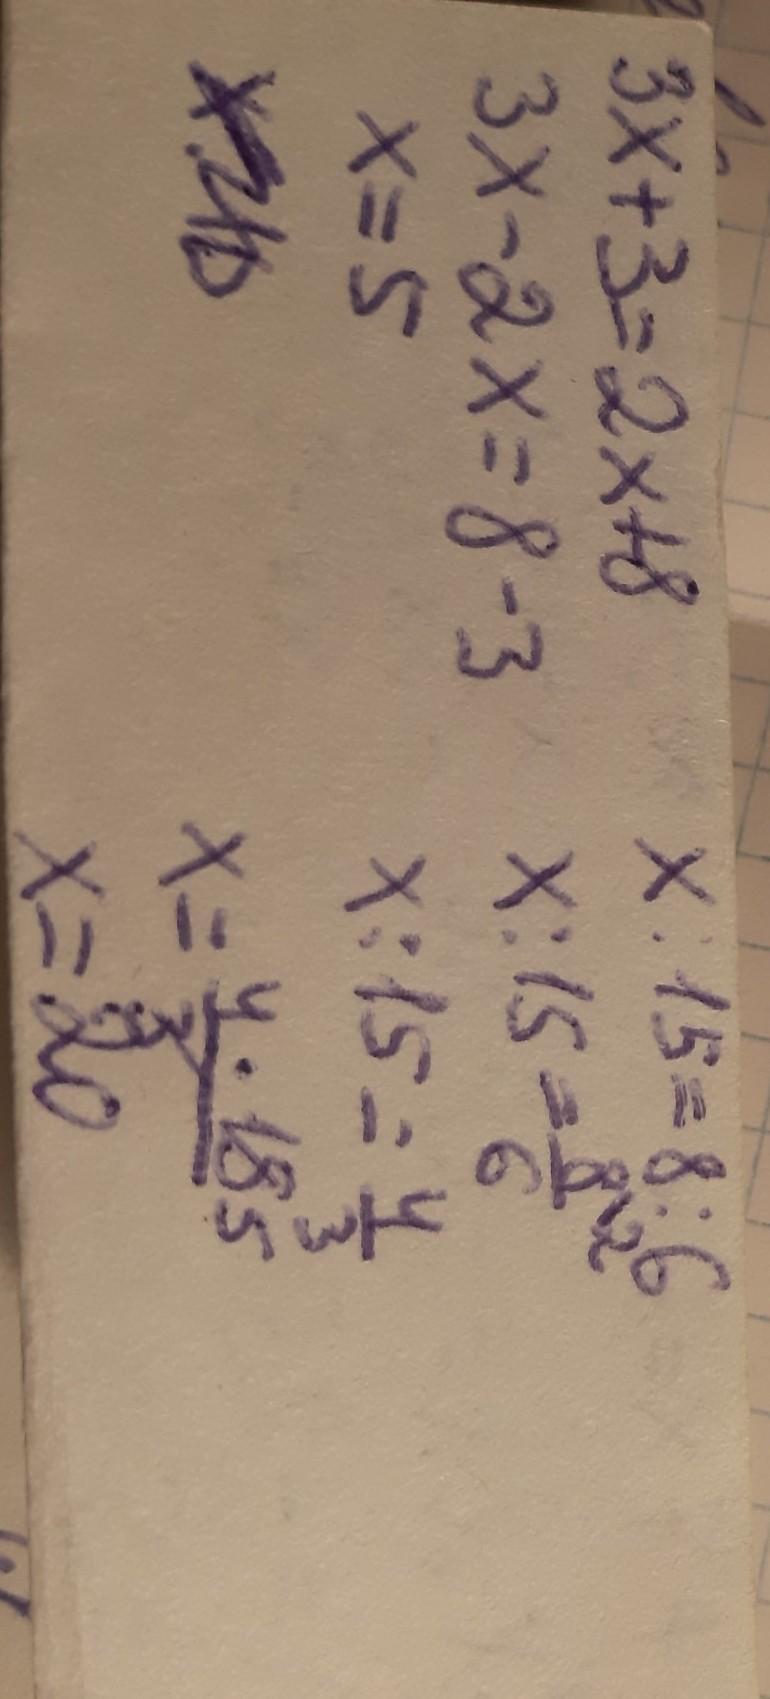 3x+3=2x+8
3x-2x=8-3
x=5
x:15=8:6
x:15=8/6 \2
x:15=4/3
x=4·15 5/3
x=20